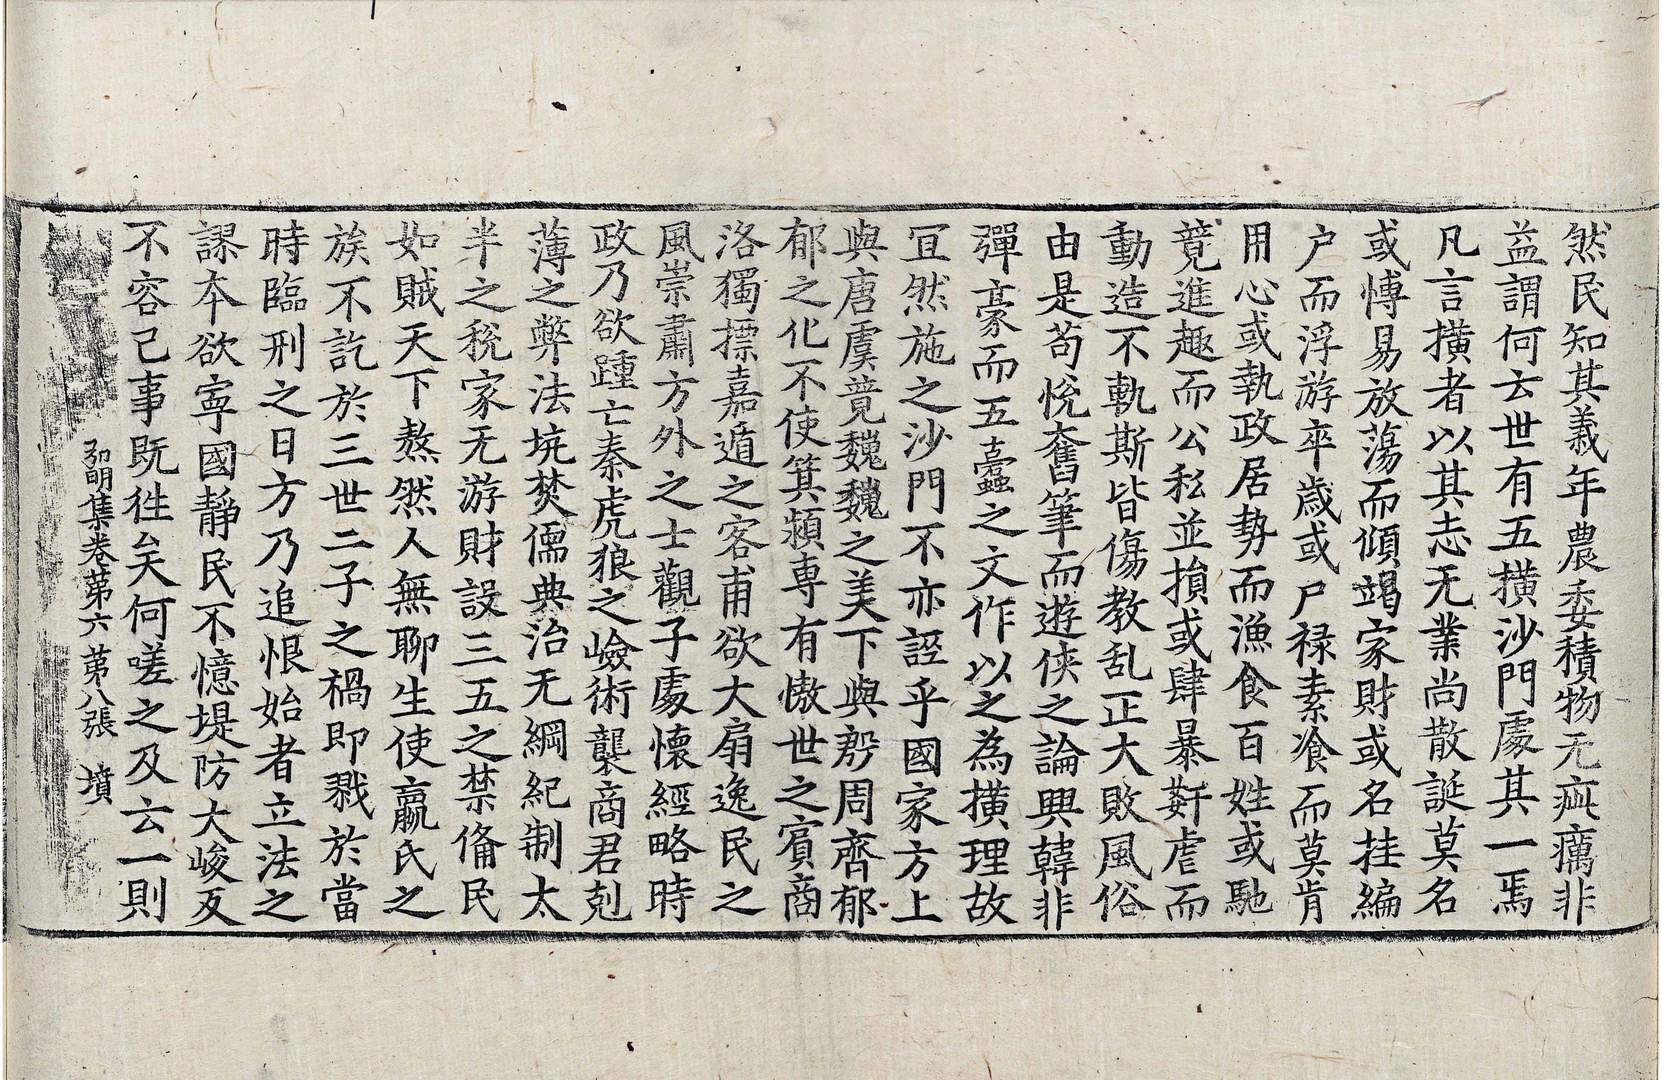 然民知其義年農委積物无疵癘非
益謂何云世有五横沙門處其一焉
凡言横者以其志无業尚散誕莫名
或博易放蕩而傾竭家財或名挂編
户而浮游卒歳或尸禄素飡而莫肯
用心或執政居勢而漁食百姓或馳
競進趣而公私並損或肆暴姧虐而
動造不軌斯皆傷教乱正大敗風俗
由是荀悅奮筆而遊俠之論興韓非
彈豪而五蠹之文作以之為横理故
冝然施之沙門不亦誣乎國家方上
與唐虞竟巍巍之美下與殷周齊郁
郁之化不使箕潁専有慠世之賓商
洛獨摽嘉遁之客甫欲大扇逸民之
風崇肅方外之士觀子處懷經略時
政乃欲踵亡秦虎狼之嶮術襲商君剋
薄之弊法坑焚儒典治无綱紀制太
半之稅家无游財設三五之禁俻民
如賊天下熬然人無聊生使嬴氏之
族不訖於三世二子之禍即戮於當
時臨刑之日方乃追恨始者立法之
謬夲欲寧國靜民不憶堤防大峻反
不容己事既徃矣何嗟之及云一則
弘明集卷第六 第八張 墳